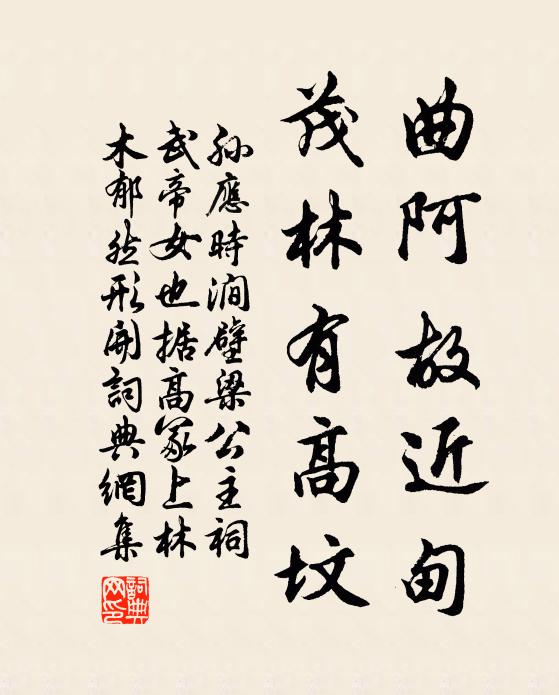 曲阿故近甸
茂林有高坟
孙應時澗壁梁公主祠
武帝女也据高冢上林
木郁然形開詞典網集
詞典网印